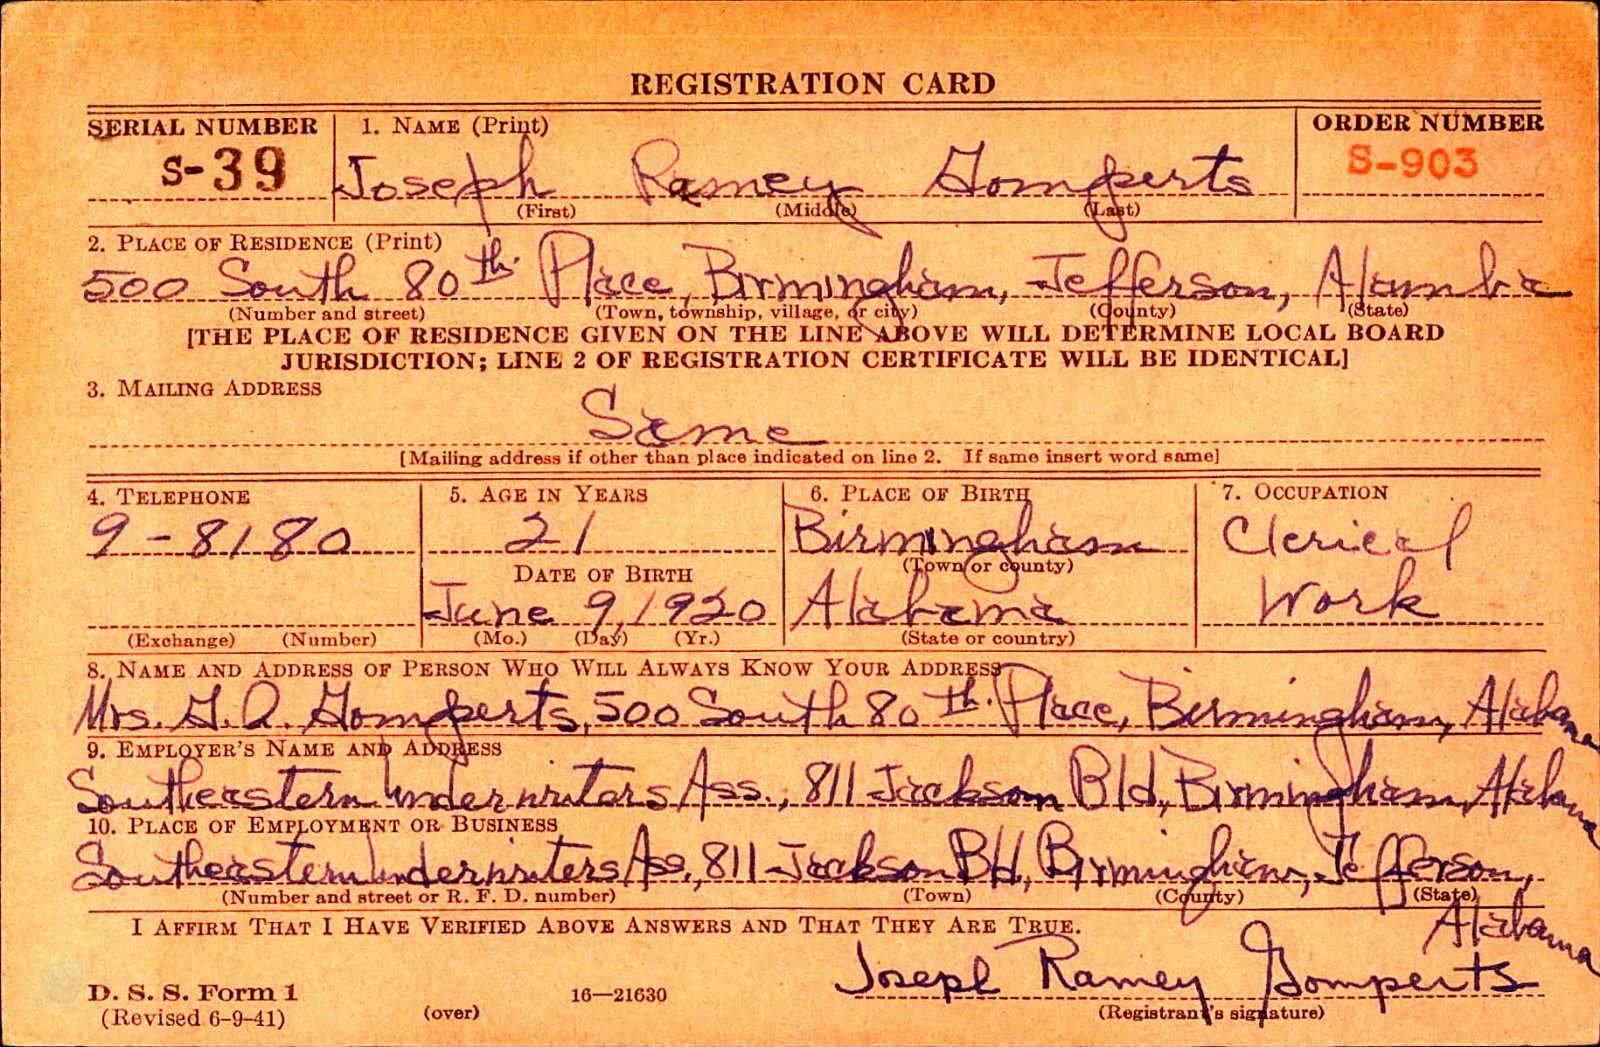 REGISTRATION CARD
SERIAL NUMBER 1. NAME (Print) ORDER NUMBER
S-39 Joseph Ramey Gomperts S-903
(First) (Middle) (Last)
2. PLACE OF RESIDENCE (Print)
500 South 80th. Place, Birmingham, Jefferson, Alamba
(Number and street) (Town, township, village, or city) (County) (State)
[THE PLACE OF RESIDENCE GIVEN ON THE LINE ABOVE WILL DETERMINE LOCAL BOARD
JURISDICTION; LINE 2 OF REGISTRATION CERTIFICATE WILL BE IDENTICAL]
3. MAILING ADDRESS
Same
[Mailing address if other than place indicated on line 2. If same insert word same]
4. TELEPHONE 5. AGE IN YEARS 6. PLACE OF BIRTH 7. OCCUPATION
9-8180 21 Birmingham Clerical
(Town or county)
DATE OF BIRTH
June 9, 1920 Alabama Work
(Exchange) (Number) (Mo.) (Day) (Yr.) (State or country)
8. NAME AND ADDRESS OF PERSON WHO WILL ALWAYS KNOW YOUR ADDRESS
Mrs. G. A. Gomperts, 500 South 80th. Place, Birmingham, Alabama
9. EMPLOYER'S NAME AND ADDRESS
Southeastern Underwriters Ass., 811 Jackson Bld, Birmingham, Alabama
10. PLACE OF EMPLOYMENT OR BUSINESS
Southeastern Underwriters Ass., 811 Jackson Bld, Birmingham, Jefferson,
(Number and street or R. F. D. number) (Town) (County) (State)
Alabama
I AFFIRM THAT I HAVE VERIFIED ABOVE ANSWERS AND THAT THEY ARE TRUE.
Joseph Ramey Gomperts
D. S. S. Form 1 16—21630
(Revised 6-9-41) (over) (Registrant's signature)